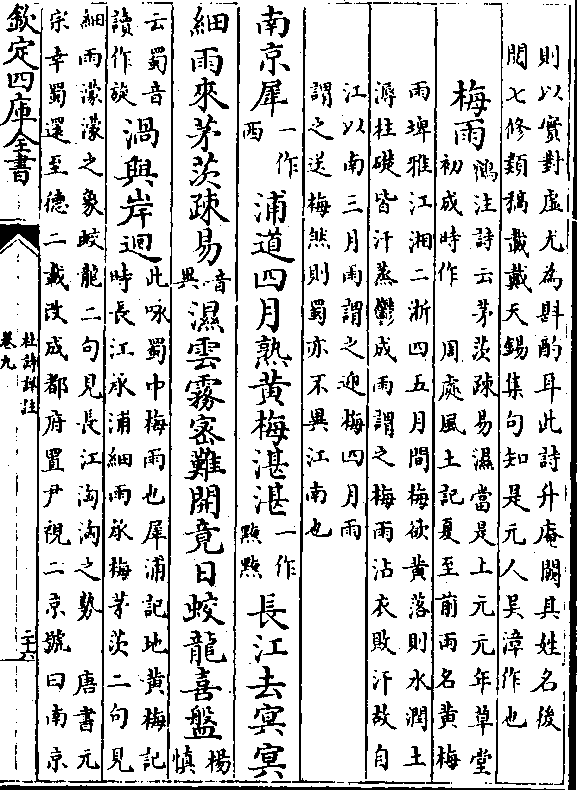 則以實對虛尤為斟酌耳此詩升庵闕其姓名後
閱七修類稿載戴天錫集句知是元人吳漳作也
梅雨
鶴注詩云茅茨疎易濕當是上元元年草堂
初成時作 周處風土記夏至前雨名黄梅
雨埤雅江湘二浙四五月間梅欲黄落則水潤土
溽柱礎皆汗蒸鬱成雨謂之梅雨沾衣敗汗故自
江以南三月雨謂之迎梅四月雨
謂之送梅然則蜀亦不異江南也
南京犀
一作
西
浦道四月熟黄梅湛湛
一作
㸃㸃
長江去㝠㝠
細雨來茅茨疎易
音
異
濕雲霧宻難開竟日蛟龍喜盤
楊
慎
云蜀音
讀作旋
渦與岸迴
此咏蜀中梅雨也犀浦記地黄梅記
時長江承浦細雨承梅茅茨二句見
細雨濛濛之象蛟龍二句見長江洶洶之勢 唐書元
宗幸蜀還至德二載改成都府置尹視二京號曰南京
欽定四庫全書
卷九
杜詩詳註
二十六